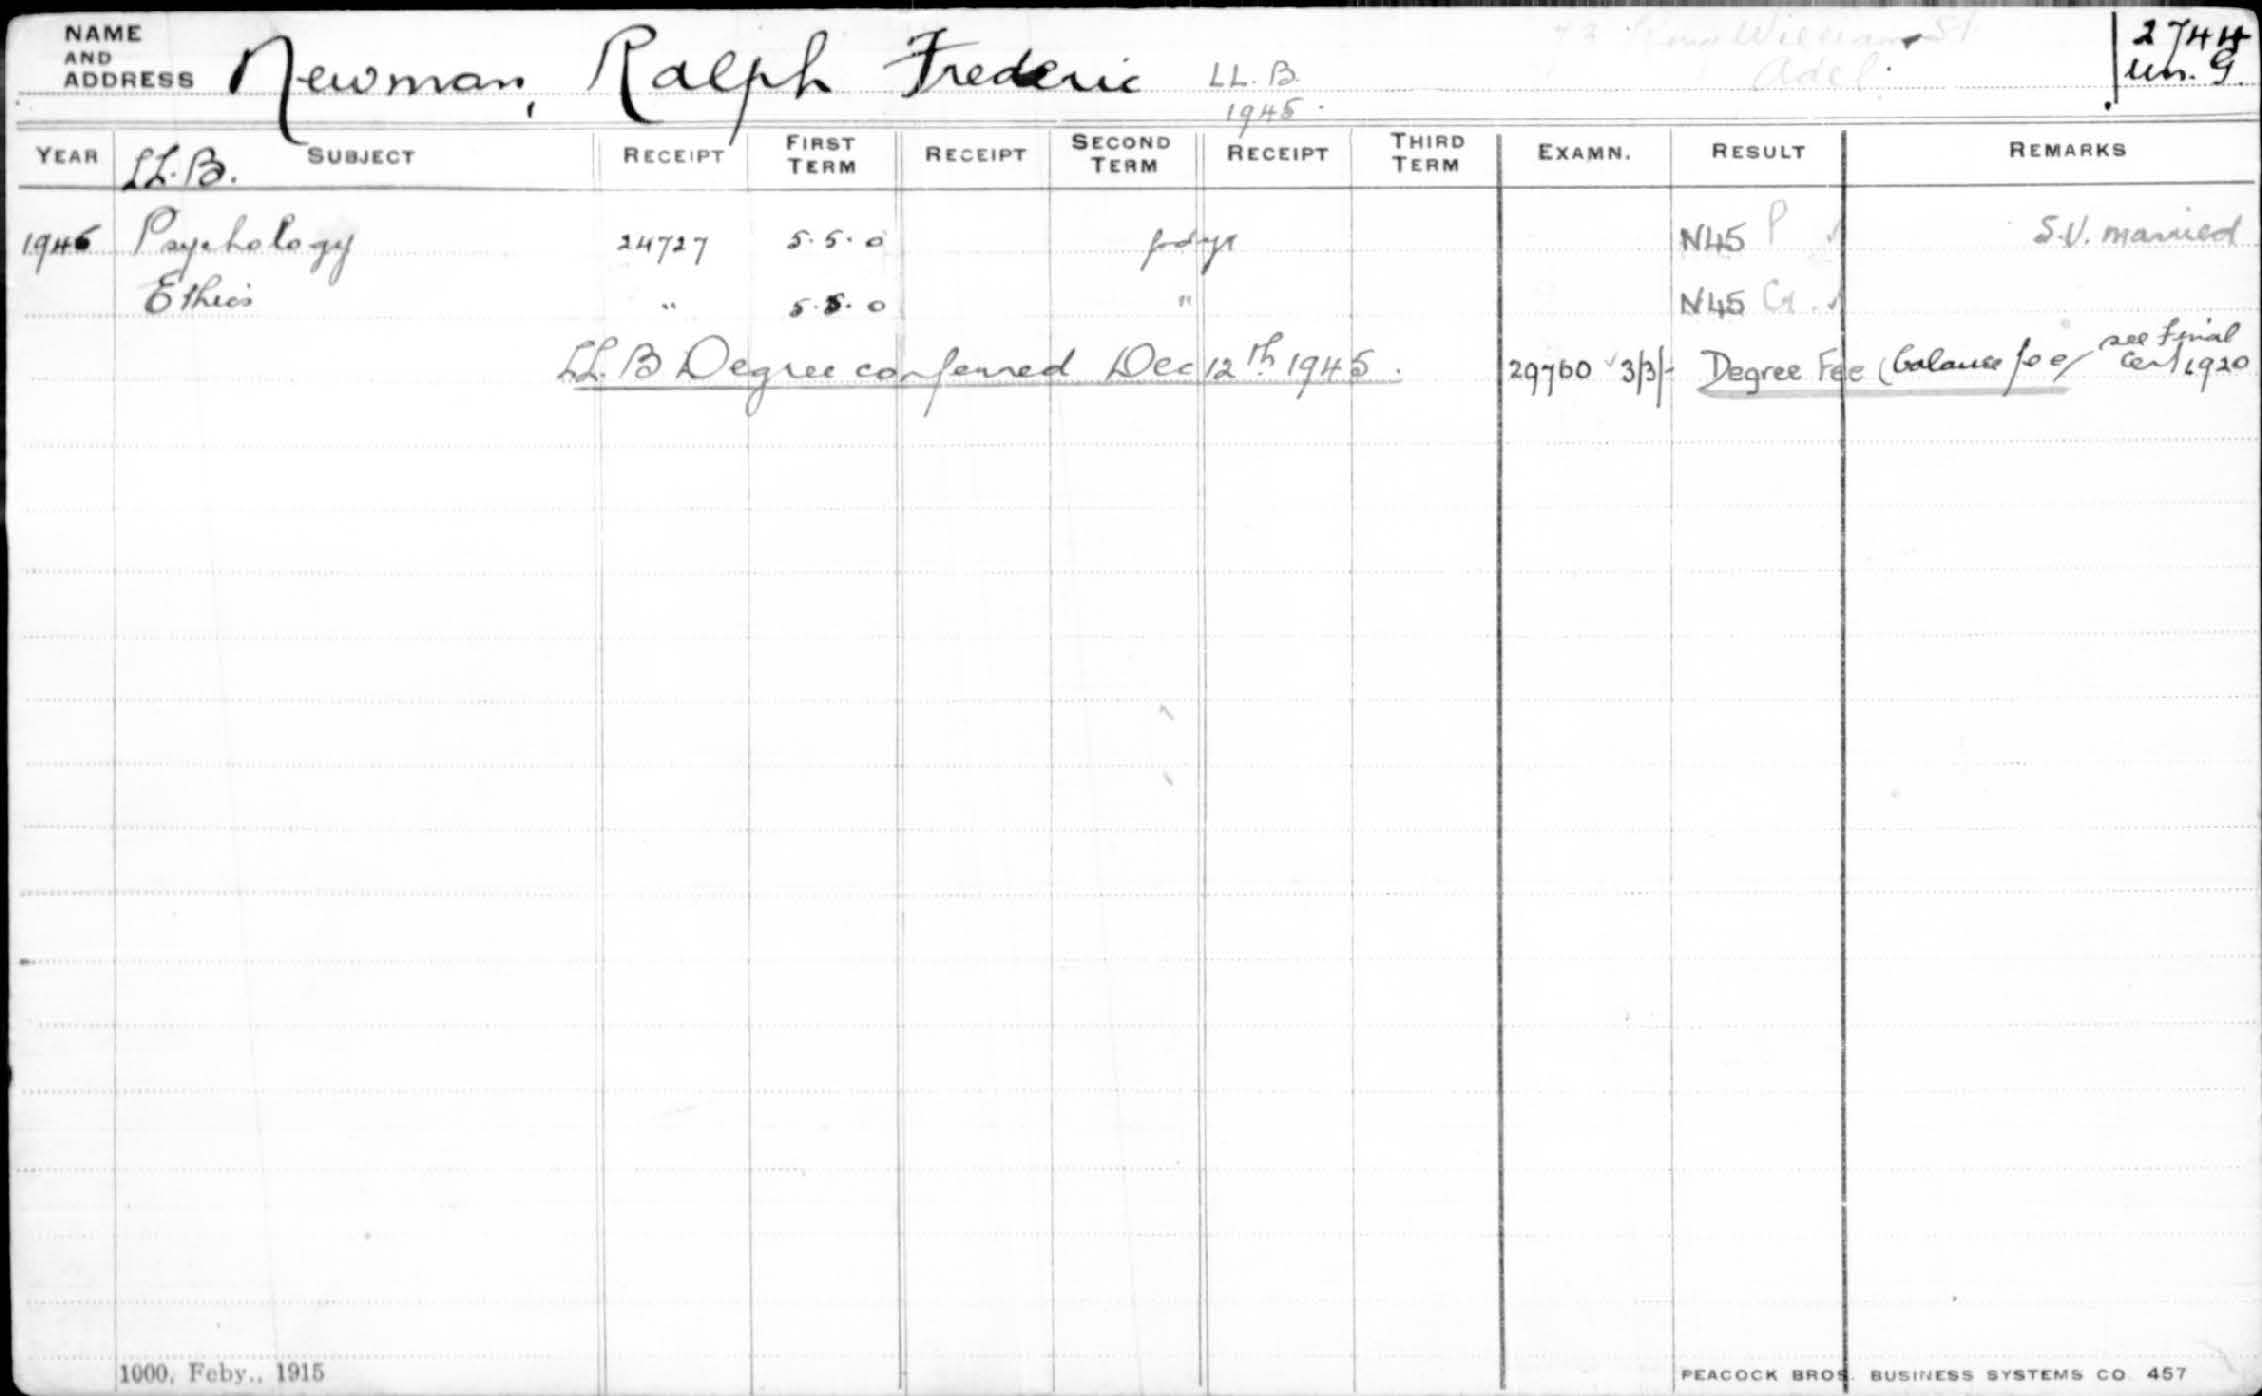 NAME AND ADDRESS Newman, Ralph Frederic LL.B. 1945. William St Adel. 2744 un. G.
YEAR LL.B. SUBJECT RECEIPT FIRST TERM RECEIPT SECOND TERM RECEIPT THIRD TERM EXAMN. RESULT REMARKS
1945 Psychology 24727 5.5.0 for yr N45 P ✓ S.V. married
Ethics " 5.5.0 " N45 Cr. ✓
LL.B Degree conferred Dec 12th 1945. 29760 ✓ 3/3/- Degree Fee (balance fee) see Final Cert 1920
1000, Feby., 1915 PEACOCK BROS. BUSINESS SYSTEMS CO 457